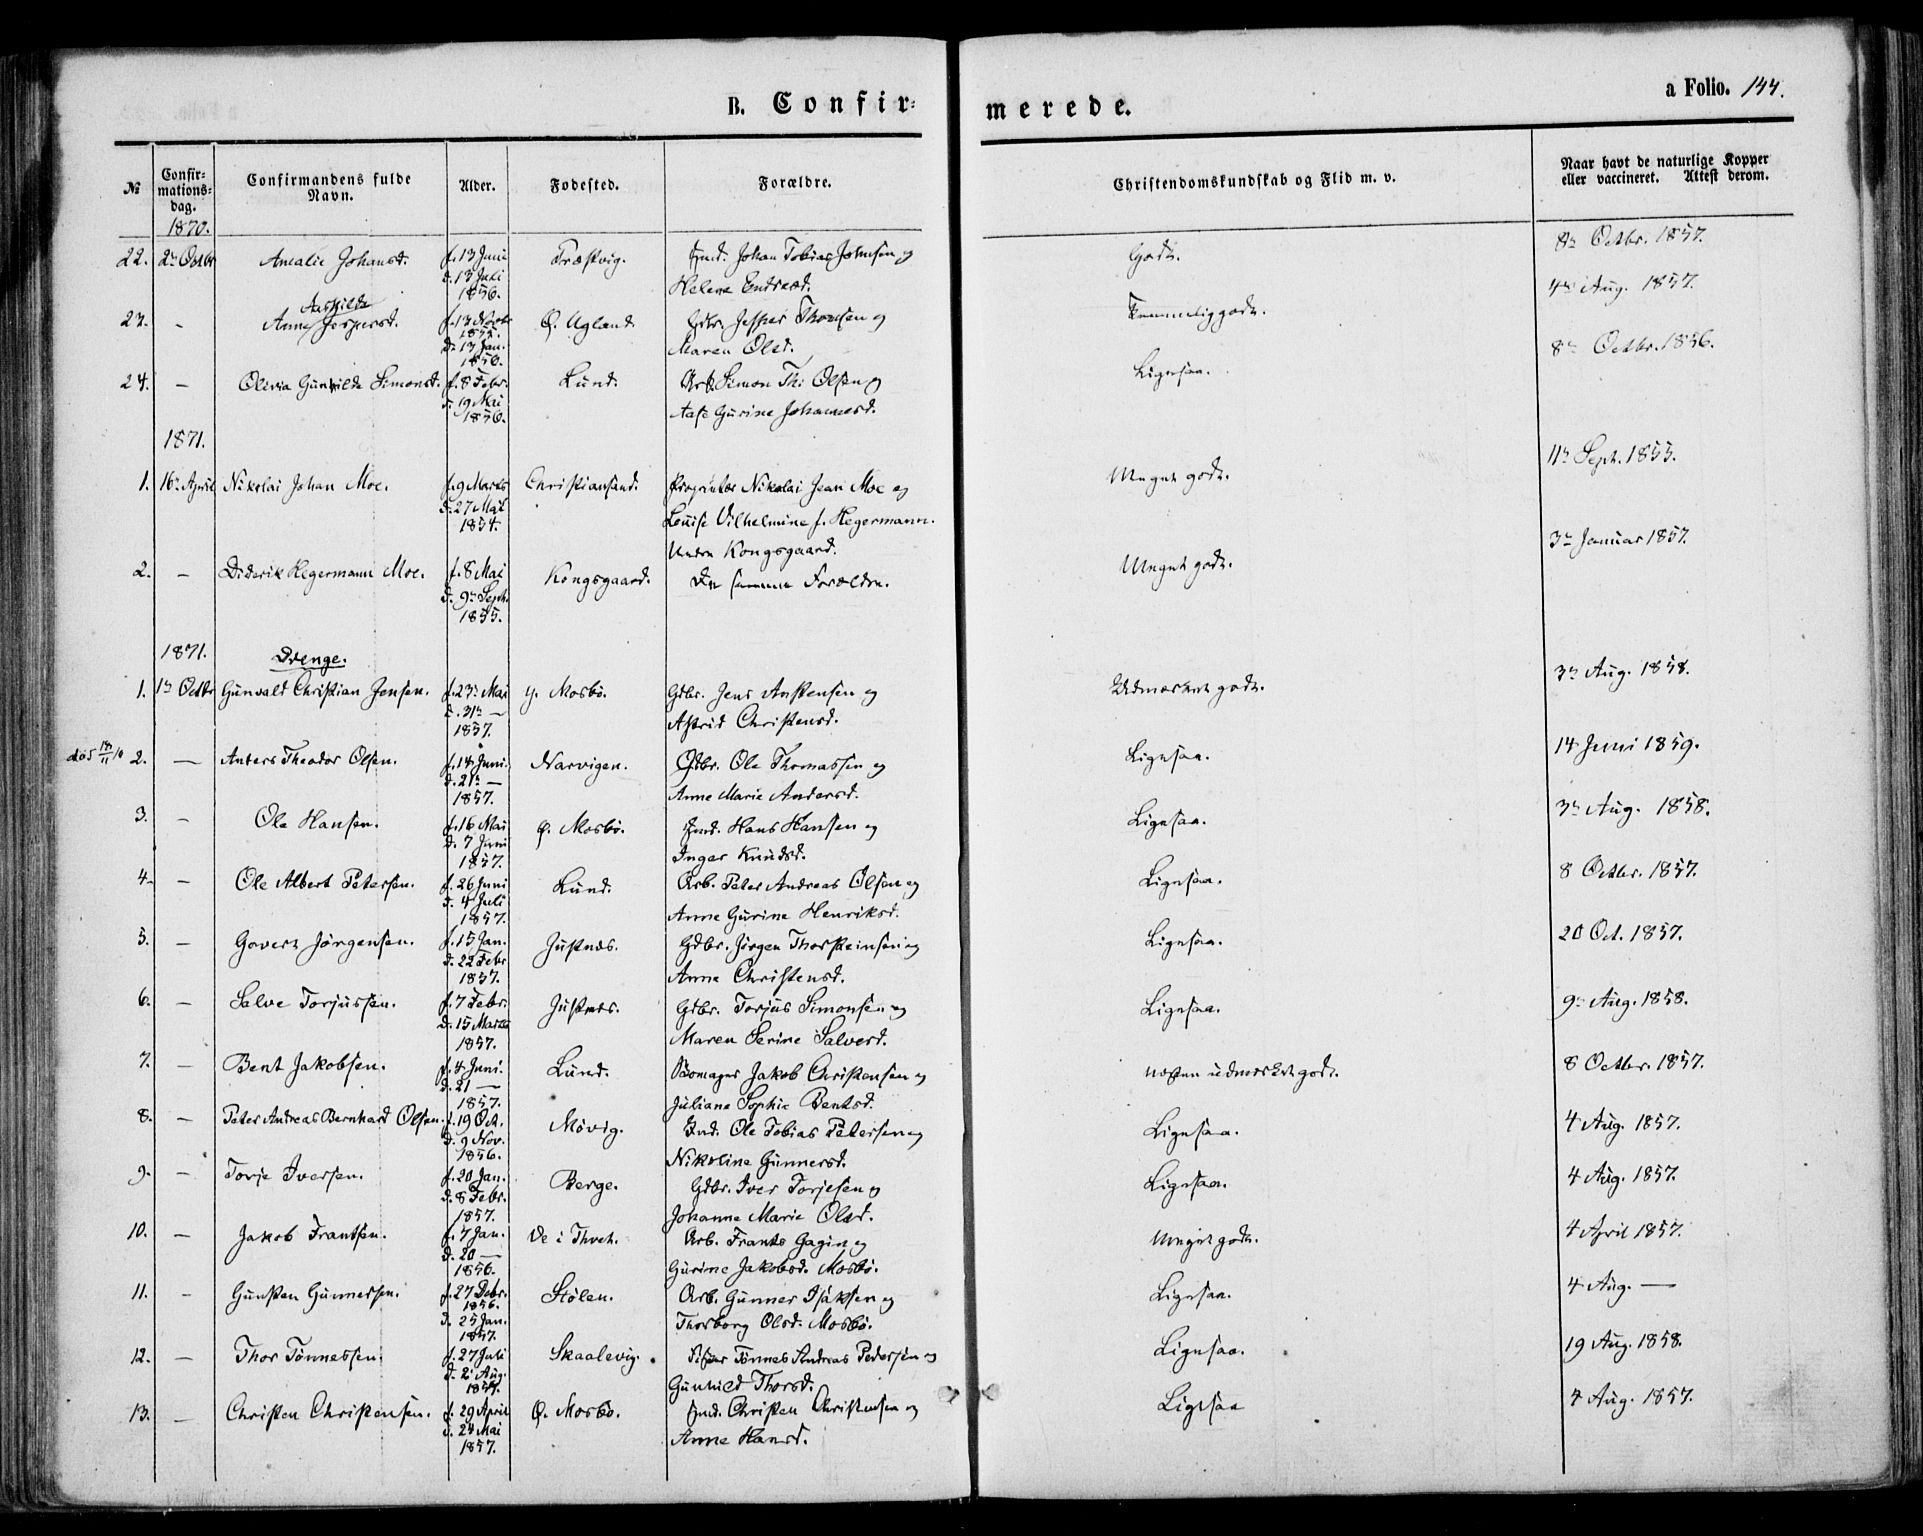 a Folio. 144.
B. Confir- merede.
№ Confir-mations-dag. Confirmandens fulde Navn. Alder. Fødested. Forældre. Christendomskundskab og Flid m. v. Naar havt de naturlige Kopper eller vaccineret. Attest derom.
1870.
22. 2n Octbr Amalie Johansd. f. 13 Juni Træskvig. Ind. Johan Tobias Johnsen og Godt. 8n Octbr. 1857.
d. 13 Juli
1856. Helene Endresd. 4n Aug. 1857.
Aashilde
23. - Anne Jespersd. f. 13 Novbr Ø. Ugland Gdbr. Jesper Thomsen og Temmelig godt.
1855.
d. 13 Jan. Maren Olsd. 8n Octbr. 1856.
1856.
24. — Olivia Gunhilde Simonsd. f. 8 Febr. Lund. Arb. Simon Th: Olsen og Ligesaa.
d. 19 Mai
1856. Aase Gurine Johannesd.
1871.
11n Sept. 1855.
1. 16n April Nikolai Johan Moe. f. 9 Marts Christiansand. Proprietær Nikolai Jean Moe og Meget godt.
d. 27 Mai
1854. Louise Vilhelmine f. Hegermann.
Kongsgaard. 3n Januar 1857.
2. — Diderik Hegermann Moe. f. 8 Mai Kongsgaard. De samme Forældre. Meget godt.
d. 9n Septb.
1855.
1871. Drenge.
1. 1n Octbr Gunvald Christian Jensen. f. 23n Mai y. Mosbø. Gdbr. Jens Anstensen og Udmærket godt. 3n Aug. 1858.
d. 31n —
1857. Astrid Christensd.
død 2. — Anders Theodor Olsen. f. 14 Juni. Narvigen. Gdbr. Ole Thomassen og Ligesaa. 14 Juni 1859.
d. 21n —
1857. Anne Marie Andersd.
3. — Ole Hansen. f. 16 Mai Ø. Mosbø. Ind. Hans Hansen og Ligesaa. 3n Aug. 1858.
d. 7 Juni
1857. Inger Knudsd.
4. — Ole Albert Petersen. f. 26 Juni Lund. Arb. Peter Andreas Olsen og Ligesaa. 8 Octbr. 1857.
d. 4 Juli
1857. Anne Gurine Henriksd.
5. — Govert Jørgensen. f. 15 Jan. Justnæs. Gdbr. Jørgen Thorsteinsen og Ligesaa. 20 Oct. 1857.
d. 22 Febr
1857. Anne Christensd.
6. — Salve Torjussen. f. 7 Febr. Justnæs. Gdbr. Torjus Simonsen og Ligesaa. 9n Aug. 1858.
d. 15 Marts
1857. Maren Serine Salvesd.
7. — Bent Jakobsen. f. 4 Juni. Lund. Jakob Christensen og næsten udmærket godt. 8 Octbr. 1857.
d. 21 —
1857. Juliane Sophie Bentsd.
8. — Peter Andreas Bernhard Olsen. f. 19 Oct. Møvig. Ind. Ole Tobias Petersen og Ligesaa. 4 Aug. 1857.
d. 9 Nov.
1856. Nikoline Gunnersd.
9. — Torje Iversen. f. 20 Jan. Berge. Gdbr. Iver Torjesen og Ligesaa. 4 Aug. 1857.
d. 8 Febr.
1857. Johanne Marie Olsd.
10. — Jakob Frantsen. f. 7 Jan. Ve i Thvet. Arb. Frants Gagin og Meget godt. 4 April 1857.
d. 20 —
1856. Gurine Jakobsd. Mosbø.
11. - Gunsten Gunnersen. f. 27 Debr. Stølen. Arb. Gunner Isaksen og Ligesaa. 4 Aug. —
1856.
d. 25 Jan. Thorborg Olsd. Mosbø.
1857.
12. — Thor Tønnessen. f. 27 Juli Skaalevig. Fisker Tønnes Andreas Pedersen og Ligesaa. 19 Aug. 1858.
d. 2 Aug.
1857. Gunhild Thorsd.
13. — Christen Christensen. f. 29 April Ø. Mosbø. Ind. Christen Christensen og Ligesaa 4 Aug. 1857.
d. 24 Mai
1857. Anne Hansd.